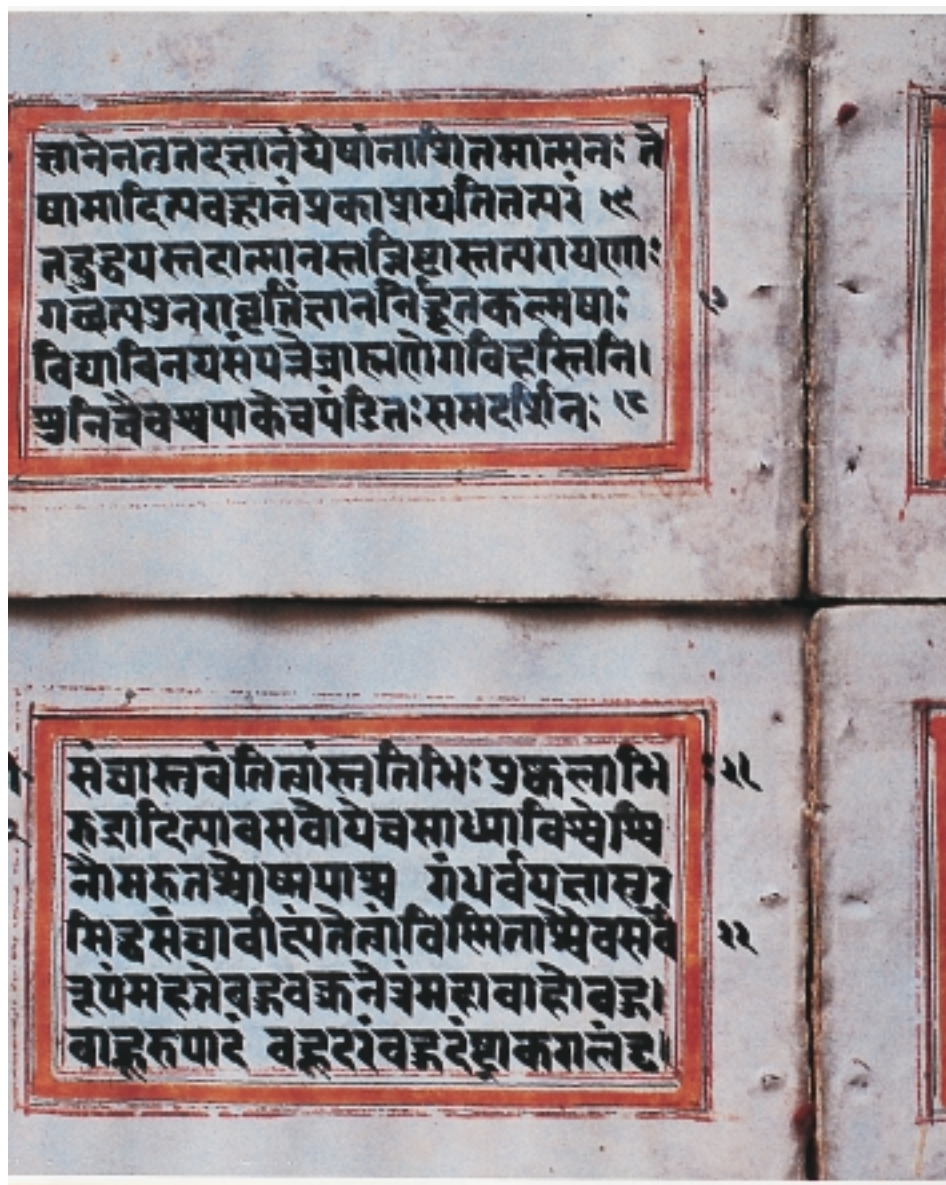 ज्ञानेनतुतदज्ञानंयेषांनाशितमात्मनः ते
षामादित्यवज्ज्ञानंप्रकाशयतितत्परं १६
तद्बुद्धयस्तदात्मानस्तन्निष्ठास्तत्परायणाः
गच्छंत्यपुनरावृत्तिंज्ञाननिर्द्धूतकल्मषाः १७
विद्याविनयसंपन्नेब्राह्मणेगविहस्तिनि।
शुनिचैवश्वपाकेचपंडितःसमदर्शिनः १८
संघास्तुवंतित्वांस्तुतिभिःपुष्कलाभि :२१
रुद्रादित्यावसवोयेचसाध्याविश्वेश्वि
नौमरुतश्चोष्मपाश्च गंधर्वयक्षासुर
सिद्धसंघावीक्ष्यंतेत्वांविस्मिताश्चैवसर्वे २२
रूपंमहत्तेबहुवक्त्रनेत्रंमहाबाहोबहु।
बाहूरुपादं बहूदरंबहुदंष्ट्राकरालंदृ।